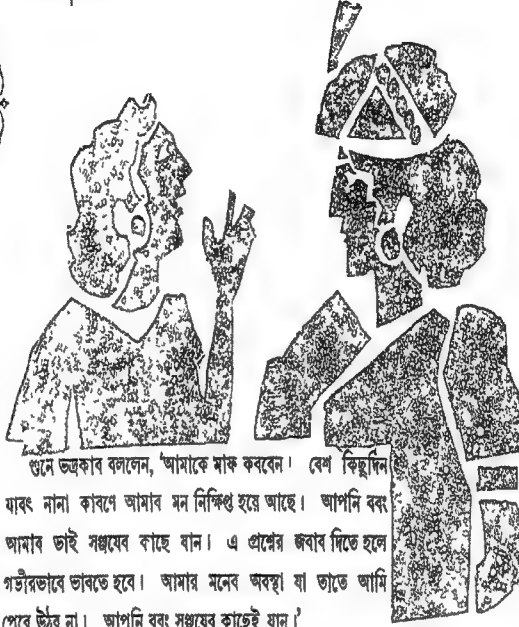 শুনে ভদ্রকাব বললেন, 'আমাকে মাফ কববেন। বেশ কিছুদিন
যাবৎ নানা কাবণে আমাব মন নিক্ষিপ্ত হয়ে আছে। আপনি ববং
আমাব ভাই সঞ্জযেব কাছে যান। এ প্রশ্নেব জবাব দিতে হলে
গভীবভাবে ভাবতে হবে। আমাব মনেব অবস্থা যা তাতে আমি
পেবে উঠব না। আপনি ববং সঞ্জযেব কাছেই যান।'